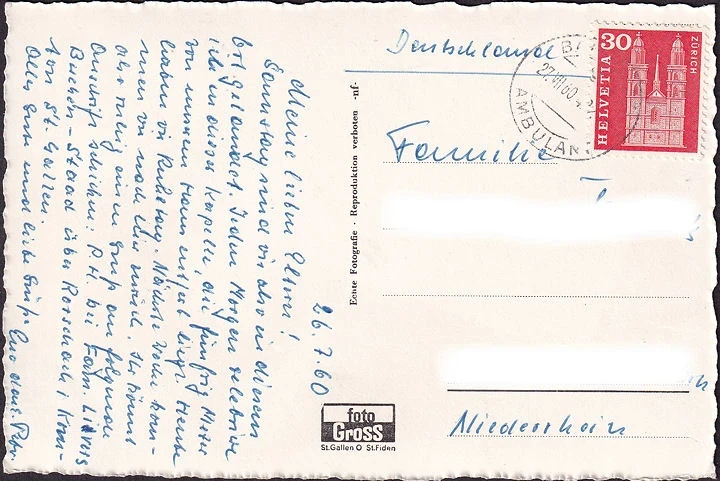 26.7.60
Meine lieben Eltern!
Samstag sind wir also in diesem
gelandet. Jeden Morgen zelebriere
ich in dieser Kapelle, die fünfzig Meter
von unserem Haus entfernt liegt. Heute
haben wir Ruhetag. Nächste Woche kom-
men wir nach hier zurück. Ihr könnt
aber ruhig einen Gruß an folgende
Anschrift schicken: P.H. bei Fam.
Buchen-Staad über Rorschach, Kan-
ton St. Gallen.
Alles Gute und liebe Grüße Euer
Echte Fotografie · Reproduktion verboten -nf-
foto
Gross
St.Gallen O St.Fiden
Deutschland
Familie
Niederrhein
30
HELVETIA
ZÜRICH
27.VII.60
AMBULANT